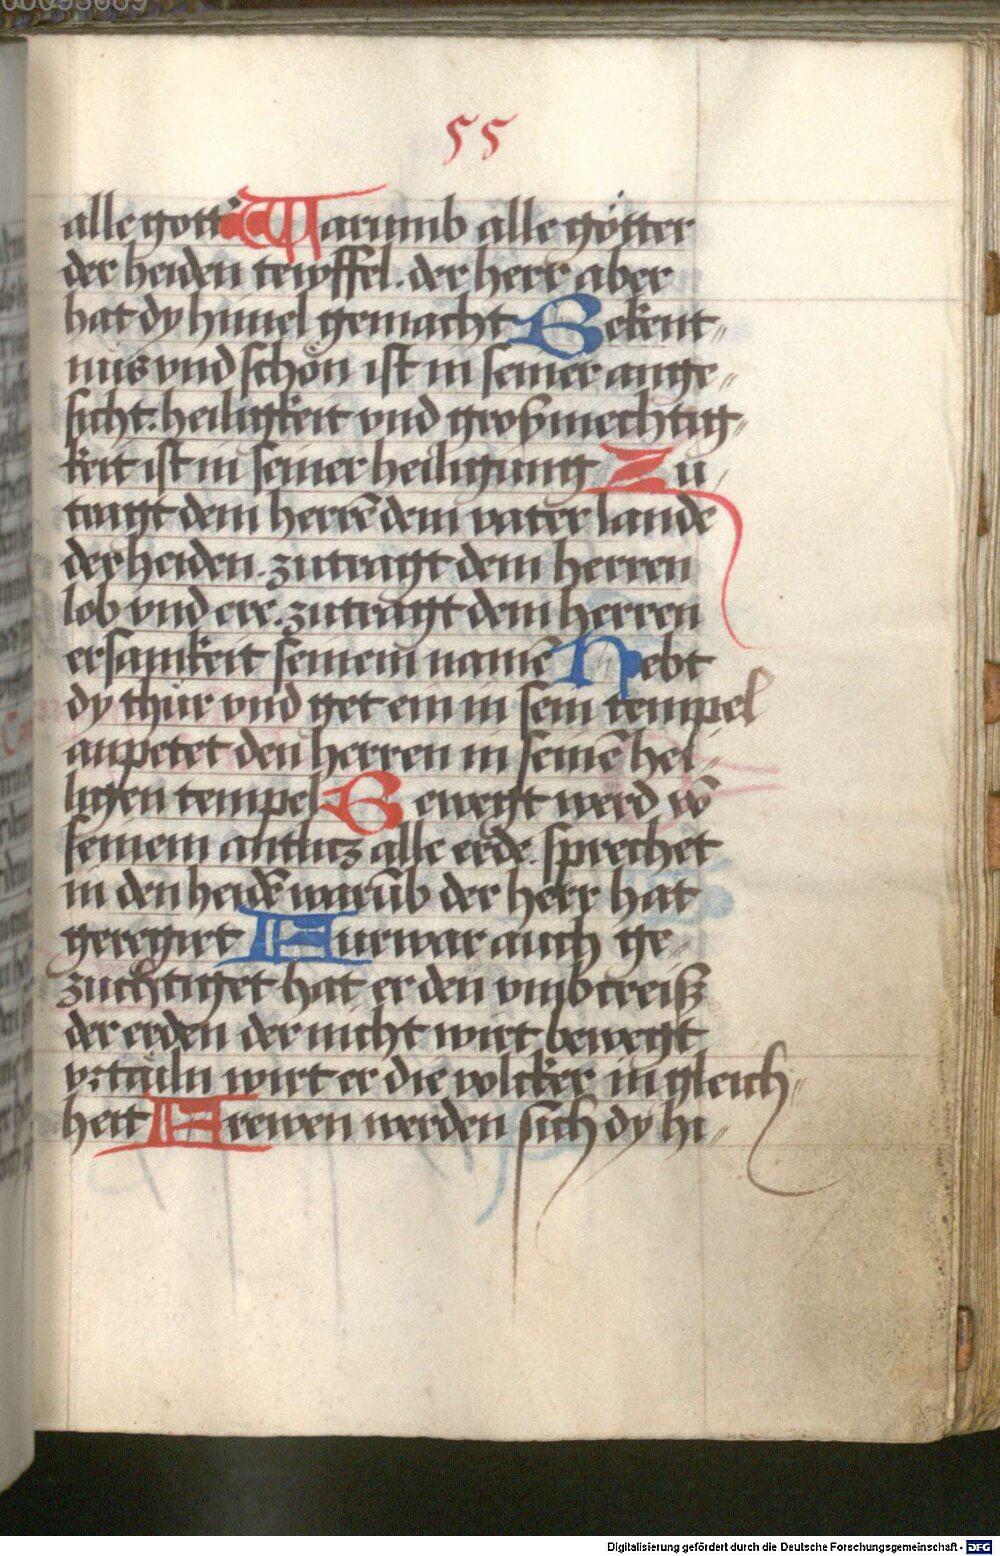 55
alle gott' Warumb alle götter
der heiden tewffel. der herr aber
hat dy himel gemacht Bekent„
nus vnd schön ist in seiner ange„
sicht: heiligkeit vnd großmechtig„
keit ist in seiner heiligung Zu„
tragt dem herrē dem vater lande
der heiden. zutragt dem herren
lob vnd ere. zutragt dem herren
ersamkeit seinem namē Hebt
dy thür vnd get ein in sein tempel
anpetet den herren in seinē hei„
ligen tempel Bewegt werd vō
seinem antlitz alle erde. sprechet
in den heidē warūb der herr hat
geregirt Furwar auch ge„
züchtiget hat er den vmbcreisz
der erden der nicht wirt bewegt
vrtailn wirt er die volcker in gleich„
heit Frewen werden sich dy hi„
Digitalisierung gefördert durch die Deutsche Forschungsgemeinschaft - DFG